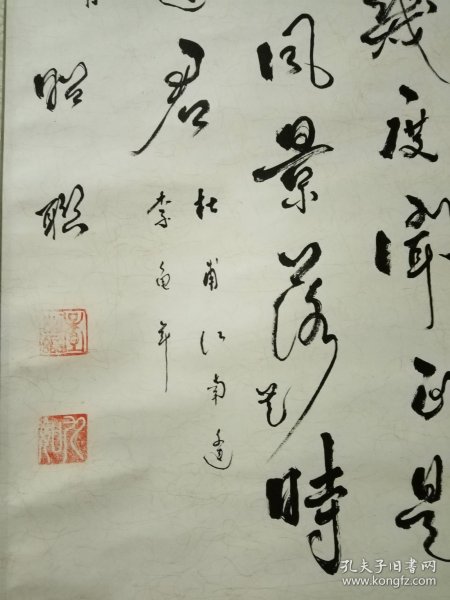 幾度聞正是
風景落花時
逢君
杜甫江南逢
李龜年
昭聯
孔夫子旧书网
www.kongfz.com